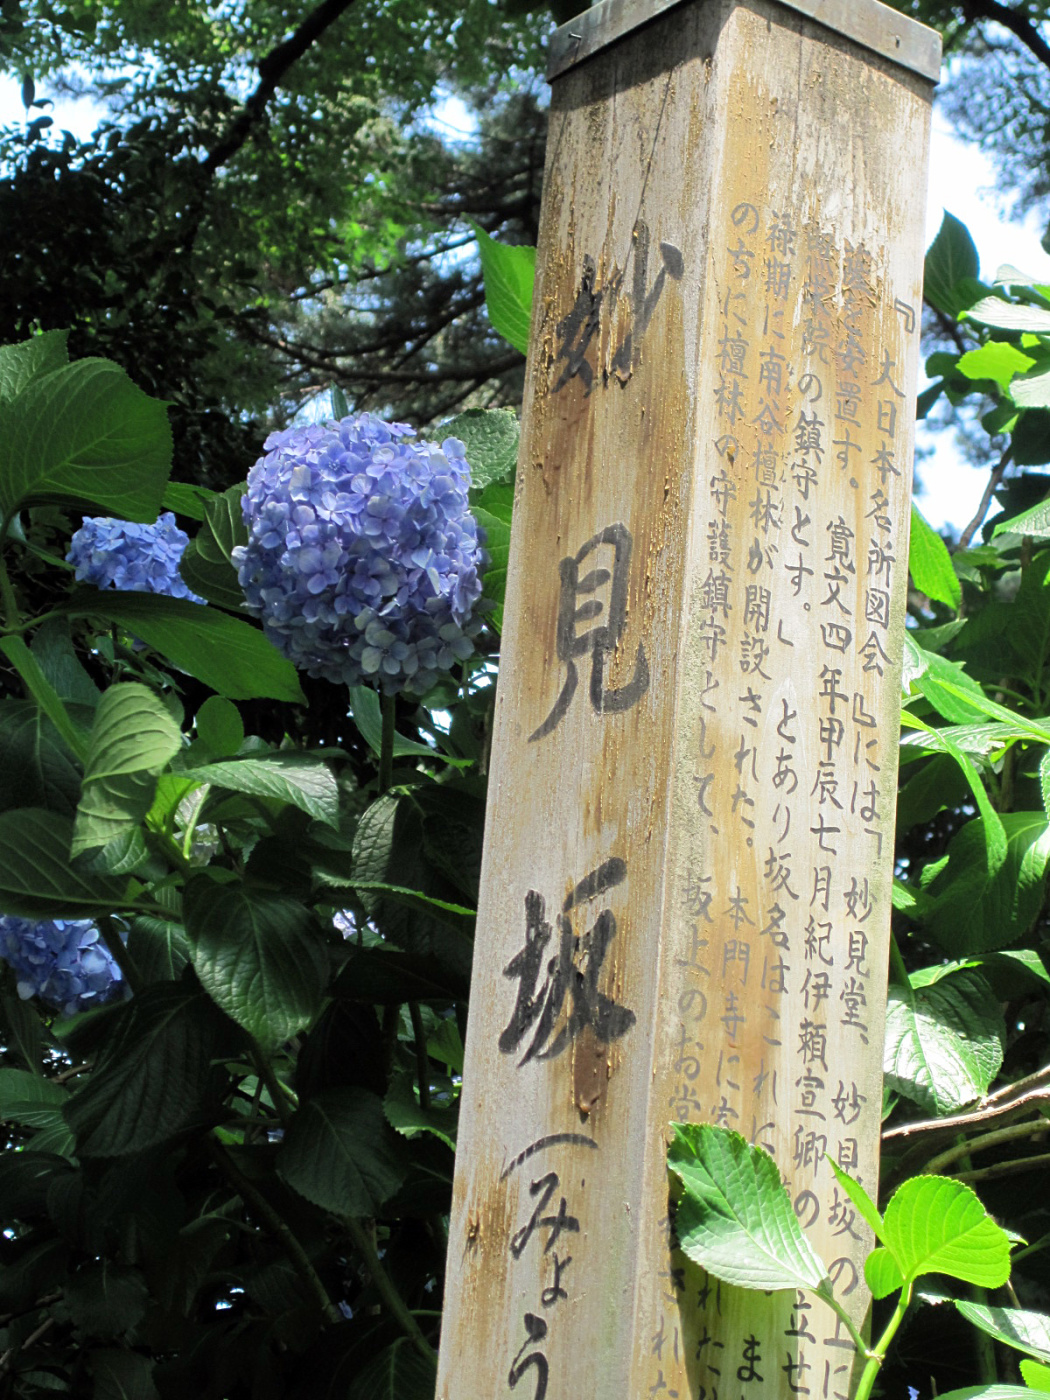 妙見坂(みょう
『大日本名所図会』には「妙見堂、妙見坂の上に
妾置す。寛文四年甲辰七月紀伊頼宣卿の 立せ
院の鎮守とす。」とあり坂名はこれに
禄期に南谷檀林が開設された。本門寺に ま
のちに檀林の守護鎮守として、坂上のお堂 れた
された